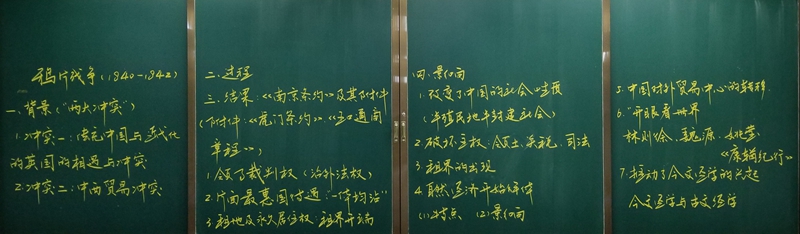 鸦片战争(1840-1842)
一、背景("两大冲突")
1.冲突一:传统中国与近代化
的英国的相遇与冲突
2.冲突二:中西贸易冲突
二、过程
三、结果:《南京条约》及其附件
(附件:《虎门条约》《五口通商
章程》)
1.领事裁判权(治外法权)
2.片面最惠国待遇:"一体均沾"
3.租地及永久居住权:租界开端
四、影响
1.改变了中国的社会性质
(半殖民地半封建社会)
2.破坏主权:领土、关税、司法
3.租界的出现
4.自然经济开始解体
(1)特点 (2)影响
5.中国对外贸易中心的转移
6."开眼看世界"
林则徐、魏源、姚莹
《康輶纪行》
7.推动了今文经学的兴起
今文经学与古文经学